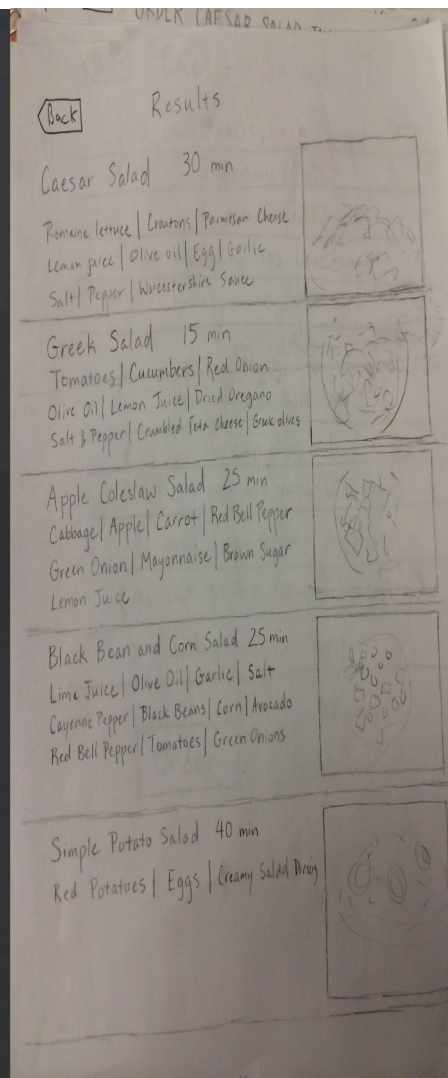 ORDER CAESAR SALAD
Back
Results
Caesar Salad 30 min
Romaine lettuce | Croutons | Parmesan Cheese
Lemon juice | Olive oil | Egg | Garlic
Salt | Pepper | Worcestershire Sauce
Greek Salad 15 min
Tomatoes | Cucumbers | Red Onion
Olive Oil | Lemon Juice | Dried Oregano
Salt & Pepper | Crumbled Feta Cheese | Greek olives
Apple Coleslaw Salad 25 min
Cabbage | Apple | Carrot | Red Bell Pepper
Green Onion | Mayonnaise | Brown Sugar
Lemon Juice
Black Bean and Corn Salad 25 min
Lime Juice | Olive Oil | Garlic | Salt
Cayenne Pepper | Black Beans | Corn | Avocado
Red Bell Pepper | Tomatoes | Green Onions
Simple Potato Salad 40 min
Red Potatoes | Eggs | Creamy Salad